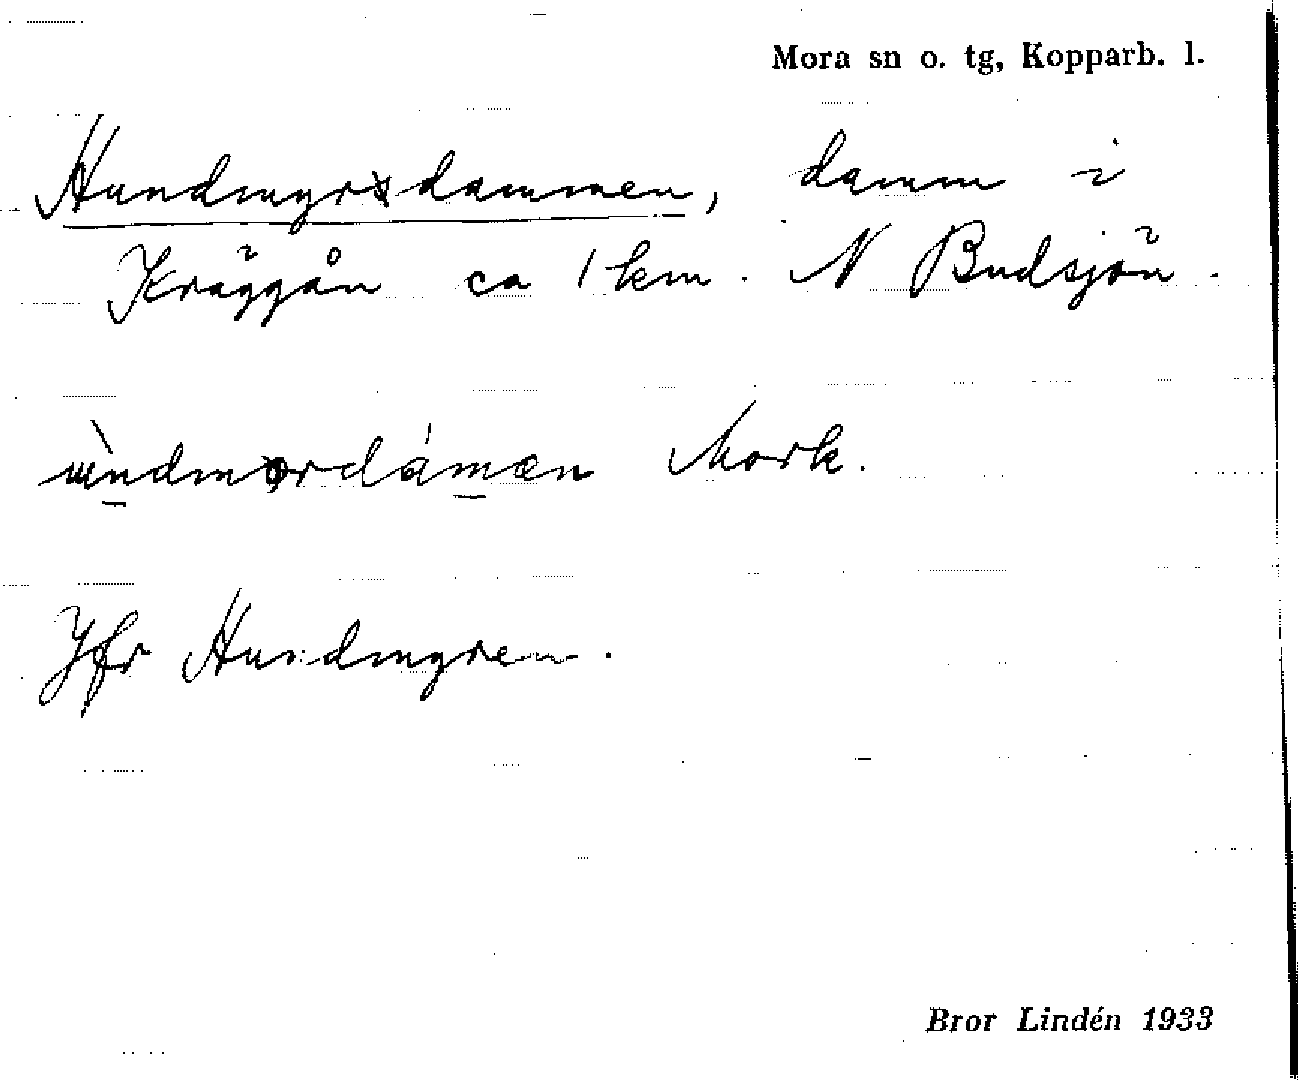 Mora sn o. tg, Kopparb. l.
Hundmyrsdammen, damm i
Kräggån ca 1 km. N Budsjön.
ùndmọrdámæn Mork.
Jfr Hundmyren.
Bror Lindén 1933